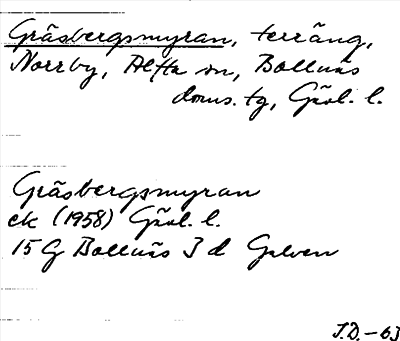 Gräsbergsmyran, terräng,
Norrby, Alfta sn, Bollnäs
doms. tg, Gävl. l.
Gräsbergsmyran
ek (1958) Gävl. l.
15 G Bollnäs 3 d Galven
J.D.-63